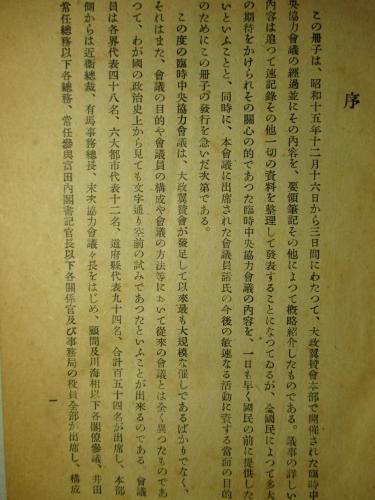 序
この冊子は、昭和十五年十二月十六日から三日間にわたつて、大政翼賛會本部で開催された臨時中
央協力會議の經過並にその内容を、要領筆記その他によつて概略紹介したものである。議事の詳しい
内容は追つて速記錄その他一切の資料を整理して發表することになつてゐるが、全國民によつて多大
の期待をかけられその關心の的であつた臨時中央協力會議の内容を、一日も早く國民の前に提供した
いといふことと、同時に、本會議に出席された會議員諸氏の今後の敏速なる活動に資する當面の目的
のためにこの冊子の發行を急いだ次第である。
この度の臨時中央協力會議は、大政翼賛會が發足して以來最も大規模な催しであるばかりでなく、
それはまた、會議の目的や會議員の構成や會議の方法等において從來の會議とは全く異つたものであ
つて、わが國の政治史上から見ても文字通り空前の試みであつたといふことが出來るのである。會議
員は各界代表四十八名、六大都市代表十二名、道府縣代表九十四名、合計百五十四名が出席し、本部
側からは近衞總裁、有馬事務總長、末次協力會議々長をはじめ、顧問及川海相以下各閣僚參議、井田
常任總務以下各總務、常任參與富田内閣書記官長以下各關係官及び事務局の役員全部が出席し、構成
一